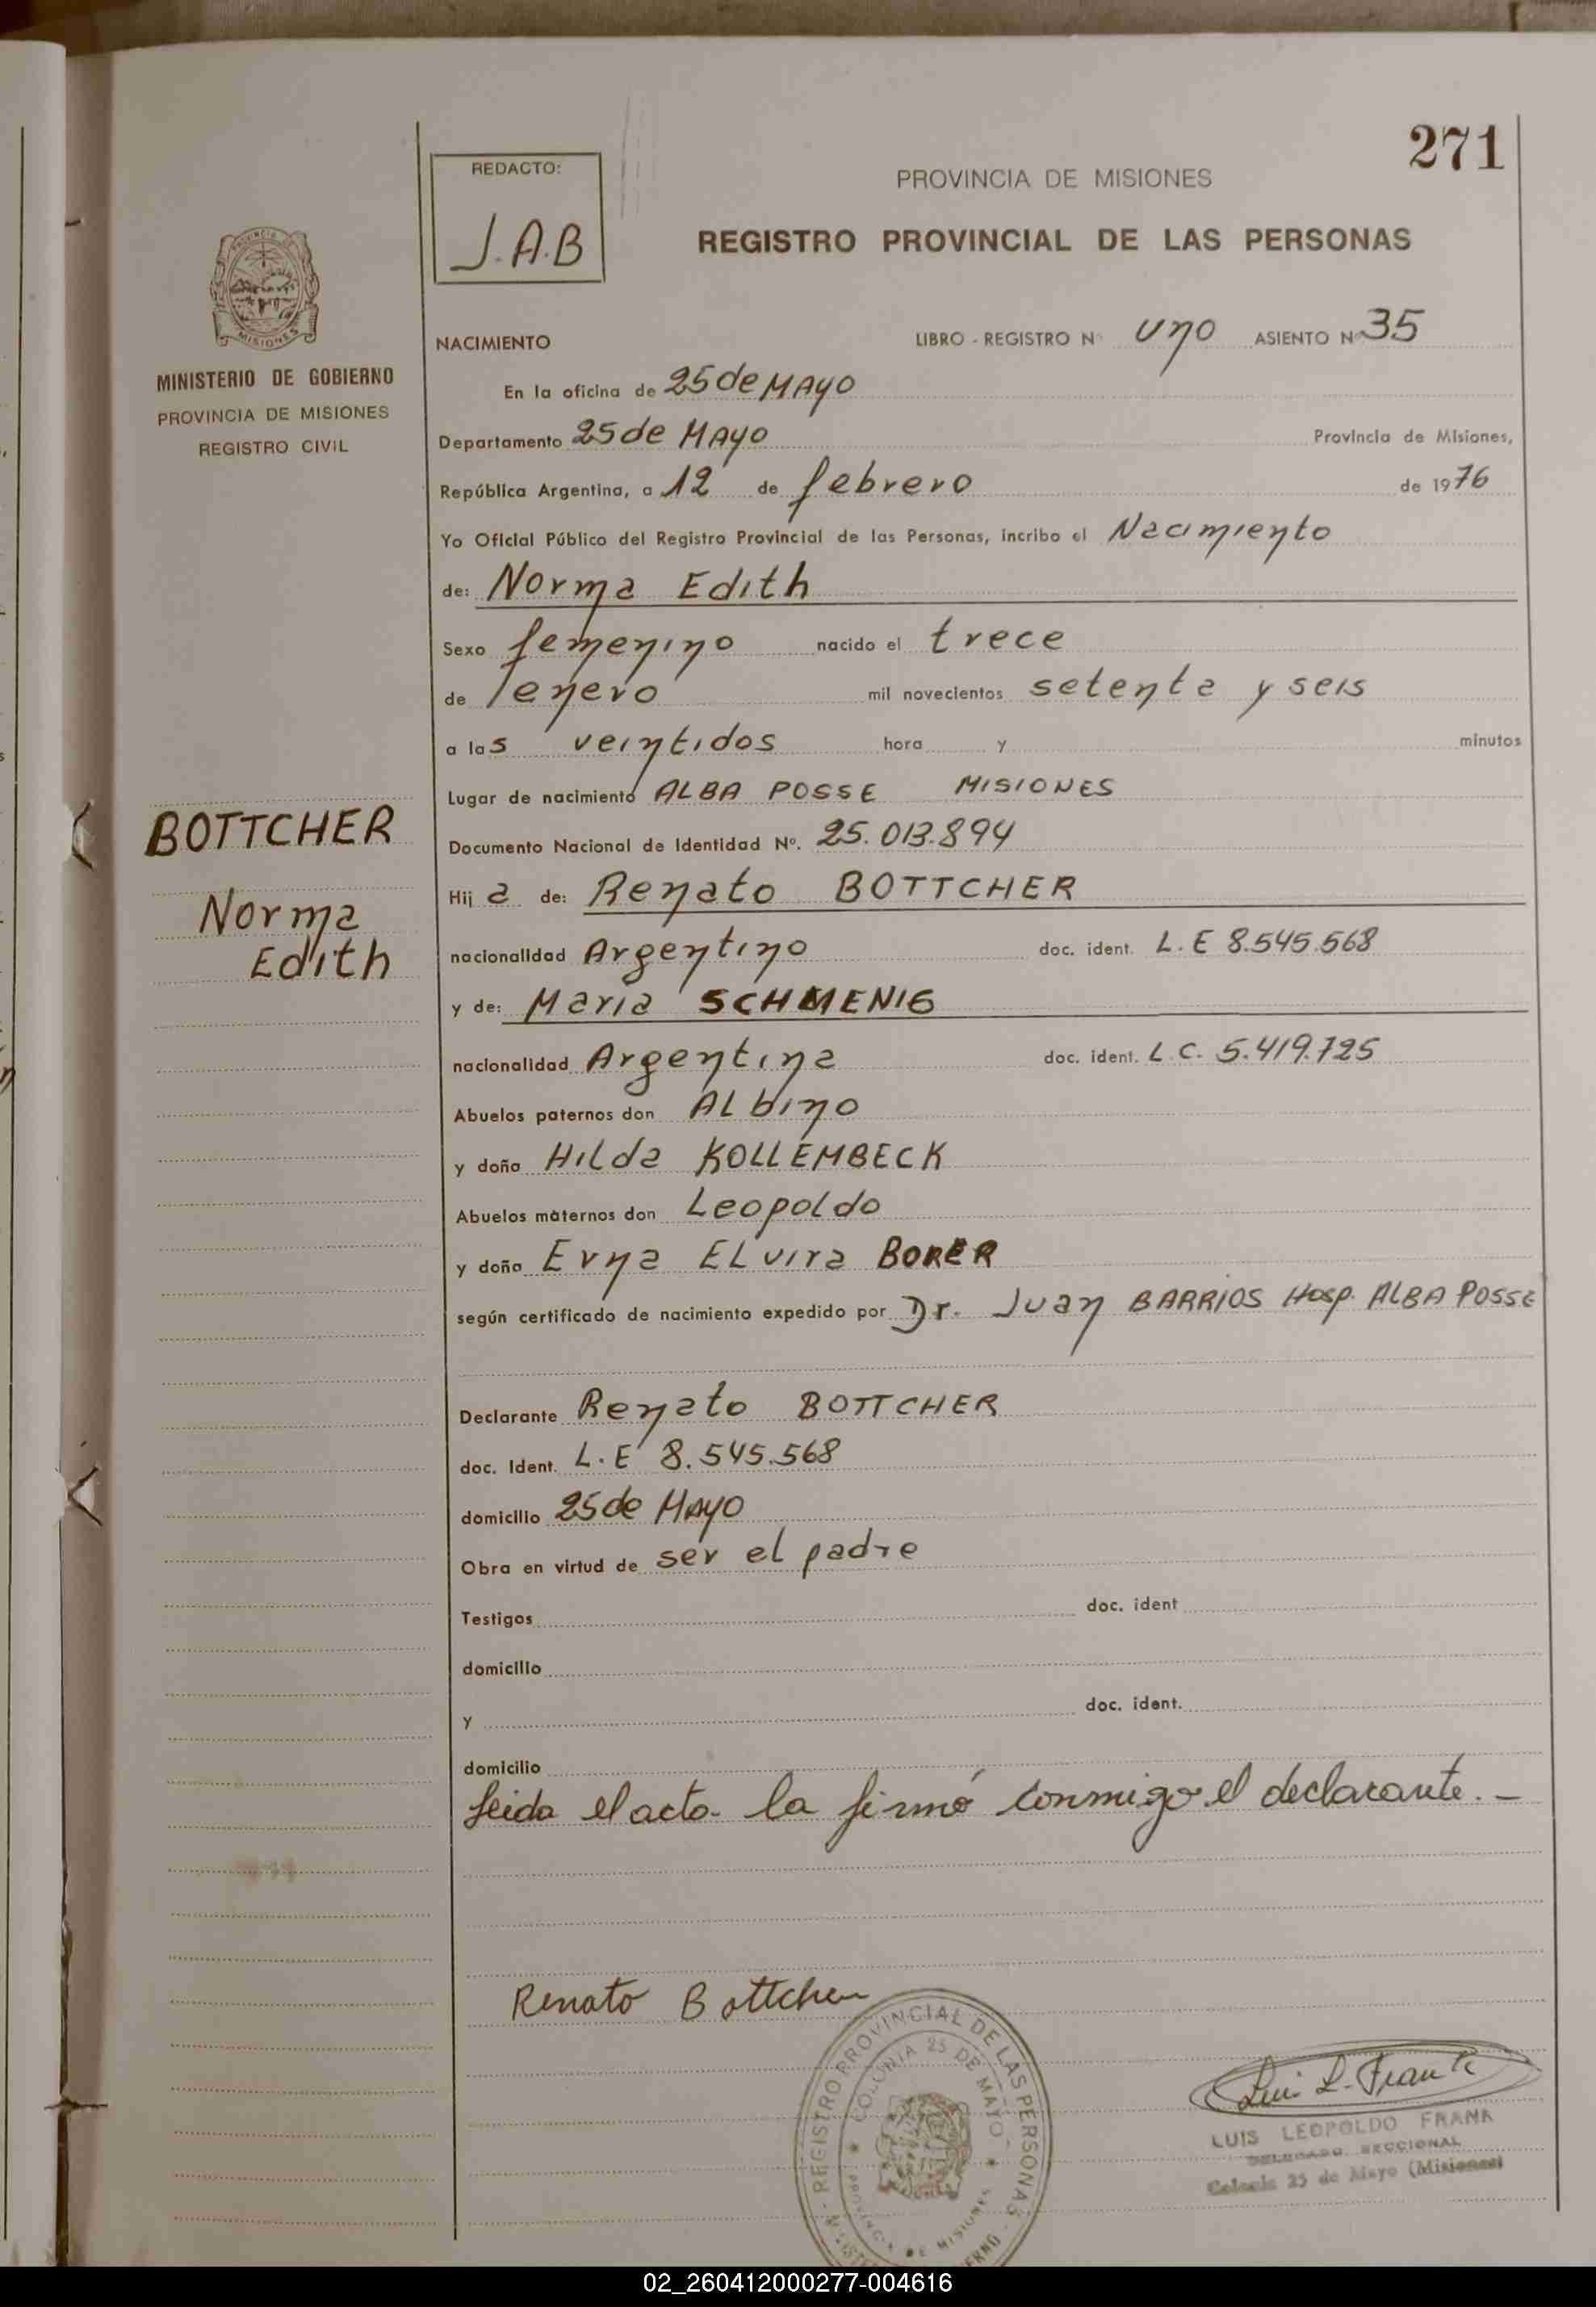 271
REDACTO:
J.A.B
PROVINCIA DE MISIONES
REGISTRO PROVINCIAL DE LAS PERSONAS
MISIONES
MINISTERIO DE GOBIERNO
PROVINCIA DE MISIONES
REGISTRO CIVIL
BOTTCHER
Norma
Edith
NACIMIENTO LIBRO - REGISTRO Nº Uno ASIENTO Nº 35
En la oficina de 25 de MAyo
Departamento 25 de MAyo Provincia de Misiones,
República Argentina, a 12 de febrero de 1976
Yo Oficial Público del Registro Provincial de las Personas, incribo el Nacimiento
de: Norma Edith
Sexo femenino nacido el trece
de enero mil novecientos setenta y seis
a las veintidos hora y minutos
Lugar de nacimiento ALBA POSSE MISIONES
Documento Nacional de Identidad Nº. 25.013.894
Hija de: Renato BOTTCHER
nacionalidad Argentino doc. ident. L.E 8.545.568
y de: Maria SCHMENIG
nacionalidad Argentina doc. ident. L.C. 5.419.725
Abuelos paternos don ALbino
y doña HiLda KOLLEMBECK
Abuelos maternos don LeopoLdo
y doña Erna ELvira BORER
según certificado de nacimiento expedido por Dr. Juan BARRIOS Hosp. ALBA POSSE
Declarante Renato BOTTCHER
doc. Ident. L.E 8.545.568
domicilio 25 de MAyo
Obra en virtud de ser el padre
Testigos doc. ident
domicilio
y doc. ident.
domicilio
Leida el acta la firmó conmigo el declarante.-
Renato Bottcher
REGISTRO PROVINCIAL DE LAS PERSONAS
COLONIA 25 DE MAYO
PROVINCIA DE MISIONES
Luis L. Frank
LUIS LEOPOLDO FRANK
DELEGADO SECCIONAL
Colonia 25 de Mayo (Misiones)
02_260412000277-004616